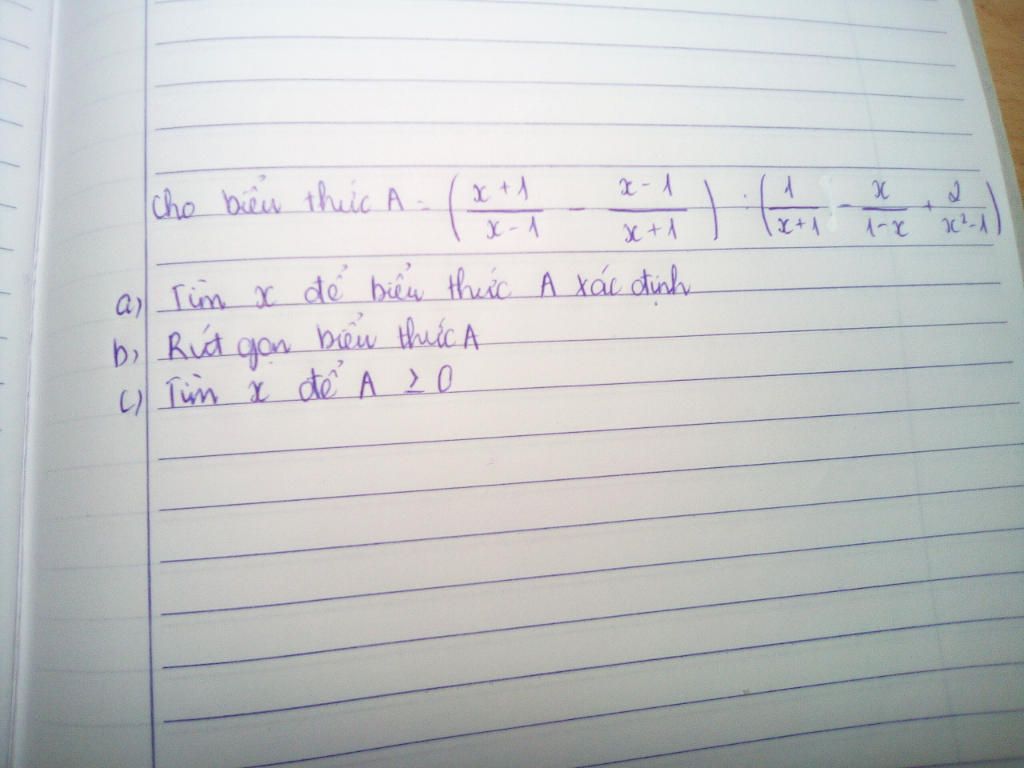 Cho biểu thức A = ( \frac{x+1}{x-1} - \frac{x-1}{x+1} ) : ( \frac{1}{x+1} - \frac{x}{1-x} + \frac{2}{x^2-1} )
a) Tìm x để biểu thức A xác định
b) Rút gọn biểu thức A
c) Tìm x để A ≥ 0